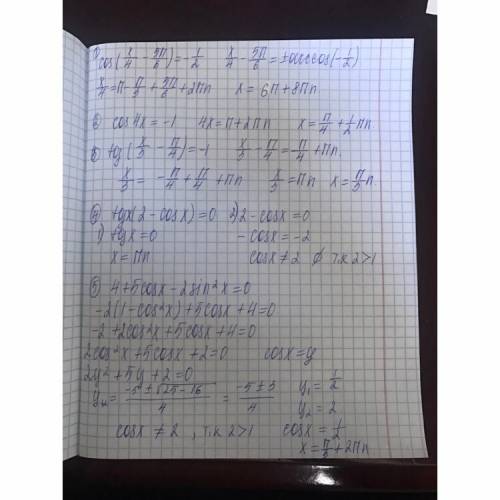 ① cos(x/4 - 5π/6) = -1/2   x/4 - 5π/6 = ±arccos(-1/2)
x/4 = π - π/3 + 5π/6 + 2πn   x = 6π + 8πn
② cos4x = -1   4x = π + 2πn   x = π/4 + 1/2 πn.
③ tg(x/3 - π/4) = -1   x/3 - π/4 = -π/4 + πn.
x/3 = -π/4 + π/4 + πn   x/3 = πn   x = π/3 n.
④ tgx(2 - cosx) = 0   2) 2 - cosx = 0
1) tgx = 0   - cosx = -2
x = πn   cosx ≠ 2 ∅ т.к 2>1
⑤ 4 + 5cosx - 2sin²x = 0
-2(1 - cos²x) + 5cosx + 4 = 0
-2 + 2cos²x + 5cosx + 4 = 0
2cos²x + 5cosx + 2 = 0   cosx = y
2y² + 5y + 2 = 0
y₁,₂ = (-5 ± √25 - 16)/4 = (-5 ± 3)/4   y₁ = 1/2
y₂ = 2
cosx ≠ 2 , т.к 2>1   cosx = 1/2
x = π/3 + 2πn